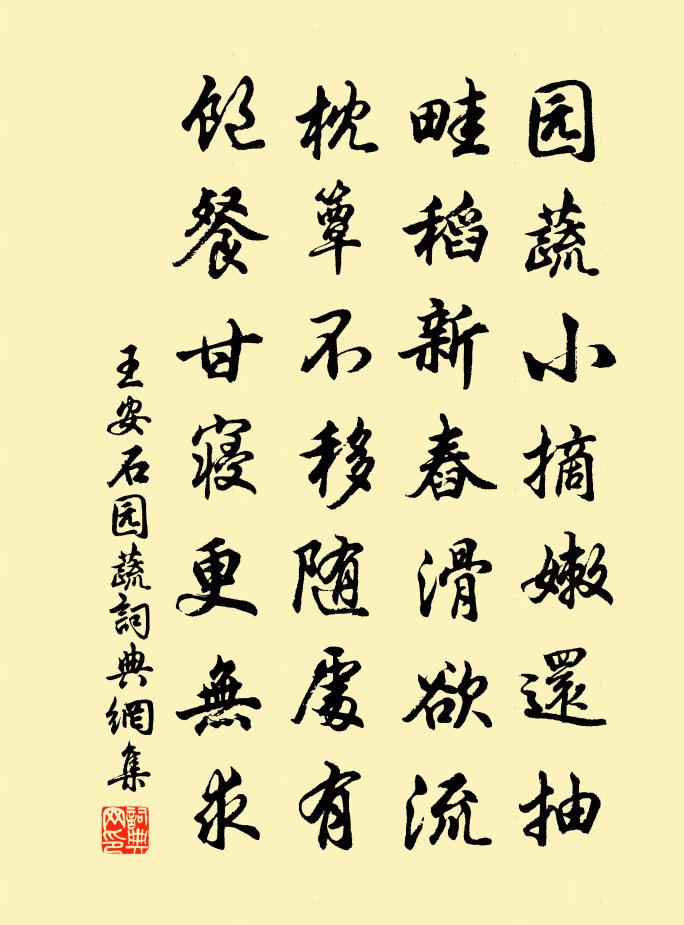 园蔬小摘嫩還抽
畦稻新舂滑欲流
枕簟不移随處有
飽餐甘寝更無求
王安石园蔬詞典網集
詞典网印